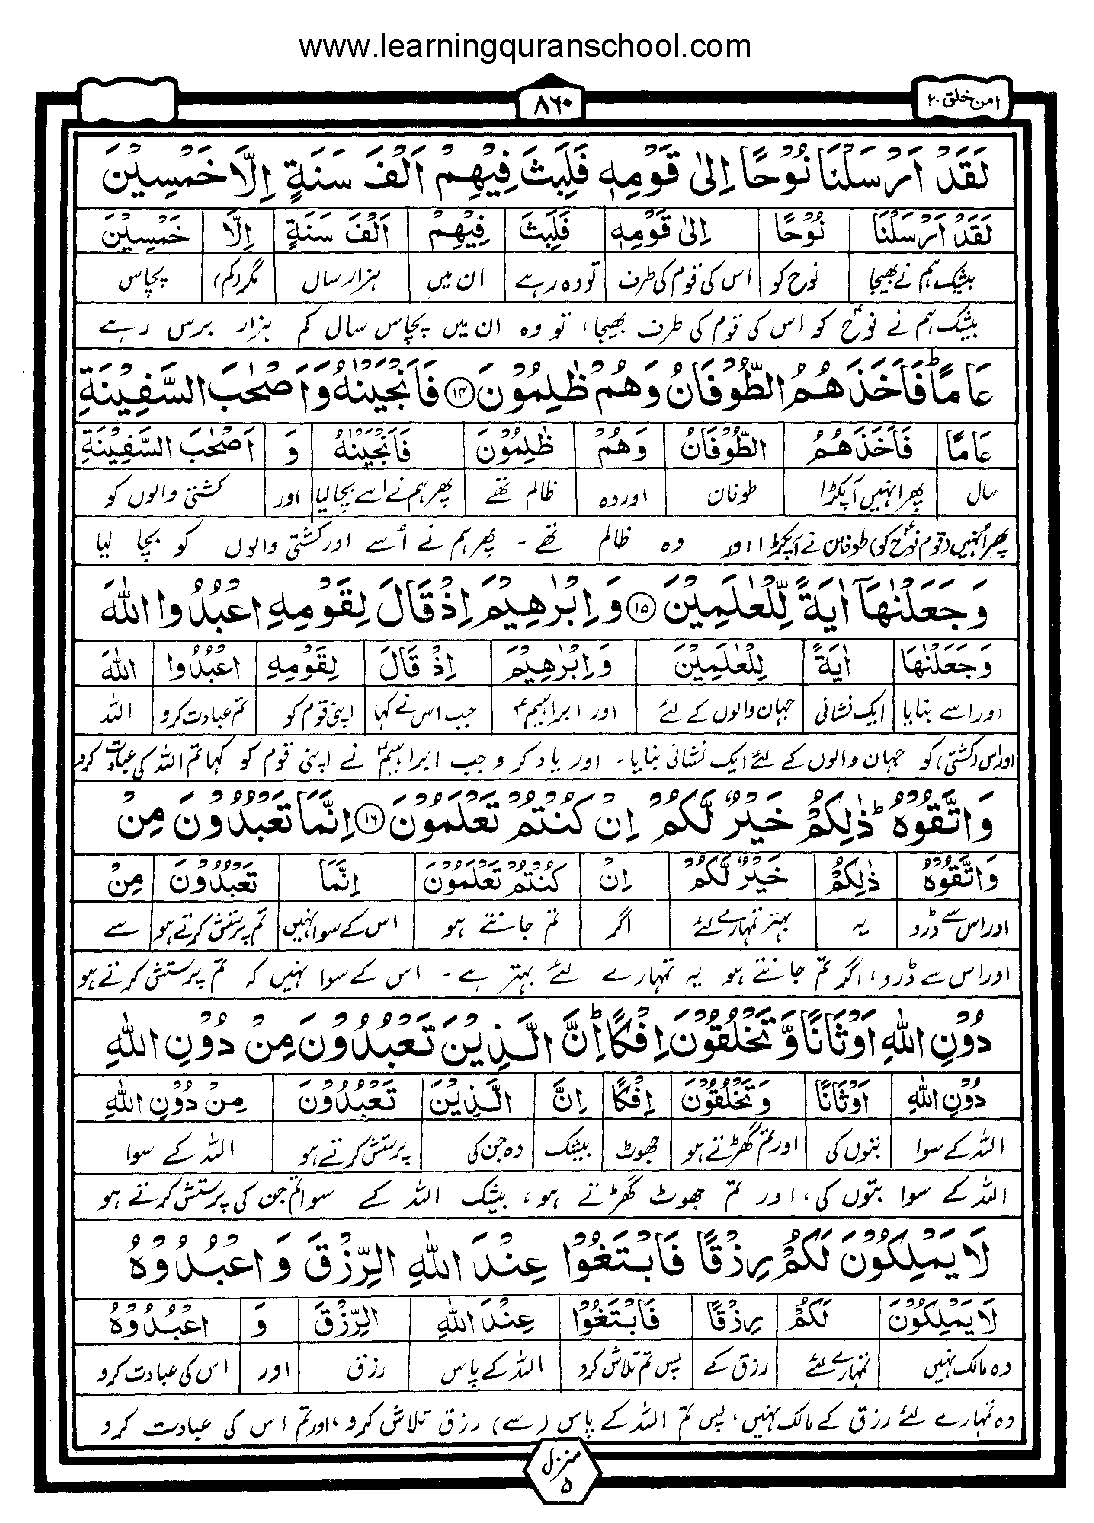 www.learningquranschool.com
امن خلق ۲۰
۸۶۰
لَقَدْ اَرْسَلْنَا نُوْحًا اِلٰى قَوْمِهٖ فَلَبِثَ فِيْهِمْ اَلْفَ سَنَةٍ اِلَّا خَمْسِيْنَ
لَقَدْ اَرْسَلْنَا نُوْحًا اِلٰى قَوْمِهٖ فَلَبِثَ فِيْهِمْ اَلْفَ سَنَةٍ اِلَّا خَمْسِيْنَ
بیشک ہم نے بھیجا نوح کو اس کی قوم کی طرف تو وہ رہے ان میں ہزار سال مگر (کم) پچاس
بیشک ہم نے نوحؑ کو اس کی قوم کی طرف بھیجا، تو وہ ان میں پچاس سال کم ہزار برس رہے
عَامًا ؕ فَاَخَذَهُمُ الطُّوْفَانُ وَهُمْ ظٰلِمُوْنَ ۝۱۴ فَاَنْجَيْنٰهُ وَاَصْحٰبَ السَّفِيْنَةِ
عَامًا فَاَخَذَهُمُ الطُّوْفَانُ وَهُمْ ظٰلِمُوْنَ فَاَنْجَيْنٰهُ وَ اَصْحٰبَ السَّفِيْنَةِ
سال پھر انہیں آپکڑا طوفان اور وہ ظالم تھے پھر ہم نے اسے بچا لیا اور کشتی والوں کو
پھر اُنہیں (قوم نوحؑ کو) طوفان نے آپکڑا اور وہ ظالم تھے۔ پھر ہم نے اُسے اور کشتی والوں کو بچا لیا
وَجَعَلْنٰهَاۤ اٰيَةً لِّلْعٰلَمِيْنَ ۝۱۵ وَاِبْرٰهِيْمَ اِذْ قَالَ لِقَوْمِهِ اعْبُدُوا اللّٰهَ
وَجَعَلْنٰهَا اٰيَةً لِّلْعٰلَمِيْنَ وَاِبْرٰهِيْمَ اِذْ قَالَ لِقَوْمِهِ اعْبُدُوا اللّٰهَ
اور اسے بنایا ایک نشانی جہان والوں کے لئے اور ابراہیمؑ جب اس نے کہا اپنی قوم کو تم عبادت کرو اللہ
اور اس (کشتی) کو جہان والوں کے لئے ایک نشانی بنایا۔ اور یاد کرو جب ابراہیمؑ نے اپنی قوم کو کہا تم اللہ کی عبادت کرو
وَاتَّقُوْهُ ؕ ذٰلِكُمْ خَيْرٌ لَّكُمْ اِنْ كُنْتُمْ تَعْلَمُوْنَ ۝۱۶ اِنَّمَا تَعْبُدُوْنَ مِنْ
وَاتَّقُوْهُ ذٰلِكُمْ خَيْرٌ لَّكُمْ اِنْ كُنْتُمْ تَعْلَمُوْنَ اِنَّمَا تَعْبُدُوْنَ مِنْ
اور اس سے ڈرو یہ بہتر تمہارے لئے اگر تم جانتے ہو اس کے سوا نہیں تم پرستش کرتے ہو سے
اور اس سے ڈرو، اگر تم جانتے ہو یہ تمہارے لئے بہتر ہے۔ اس کے سوا نہیں کہ تم پرستش کرتے ہو
دُوْنِ اللّٰهِ اَوْثَانًا وَّتَخْلُقُوْنَ اِفْكًا ؕ اِنَّ الَّذِيْنَ تَعْبُدُوْنَ مِنْ دُوْنِ اللّٰهِ
دُوْنِ اللّٰهِ اَوْثَانًا وَتَخْلُقُوْنَ اِفْكًا اِنَّ الَّذِيْنَ تَعْبُدُوْنَ مِنْ دُوْنِ اللّٰهِ
اللہ کے سوا بتوں کی اور تم گھڑتے ہو جھوٹ بیشک وہ جن کی پرستش کرتے ہو اللہ کے سوا
اللہ کے سوا بتوں کی، اور تم جھوٹ گھڑتے ہو، بیشک اللہ کے سوا تم جن کی پرستش کرتے ہو
لَا يَمْلِكُوْنَ لَكُمْ رِزْقًا فَابْتَغُوْا عِنْدَ اللّٰهِ الرِّزْقَ وَاعْبُدُوْهُ
لَا يَمْلِكُوْنَ لَكُمْ رِزْقًا فَابْتَغُوْا عِنْدَ اللّٰهِ الرِّزْقَ وَ اعْبُدُوْهُ
وہ مالک نہیں تمہارے لئے رزق کے پس تم تلاش کرو اللہ کے پاس رزق اور اس کی عبادت کرو
وہ تمہارے لئے رزق کے مالک نہیں، پس تم اللہ کے پاس (سے) رزق تلاش کرو، اور تم اس کی عبادت کرو
منزل ۵